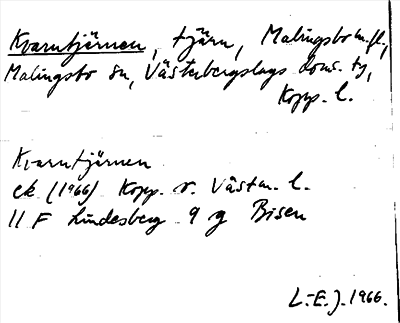 Kvarntjärnen, tjärn, Malingsbo m.fl.,
Malingsbo sn, Västerbergslags doms. ty,
Kopp. l.
Kvarntjärnen
ek (1966) Kopp. o. Västm. l.
11 F Lindesberg 9 g Bisen
L.-E. J. 1966.